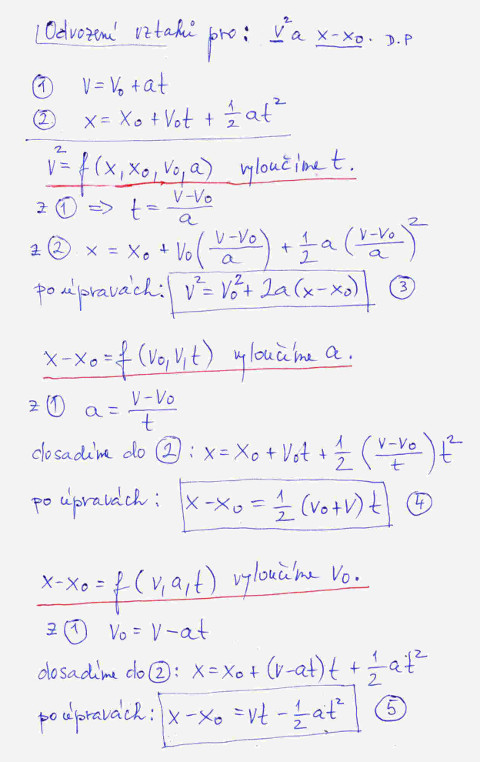 Odvození vztahů pro: v² a x-x₀. D.P
① v = v₀ + at
② x = x₀ + v₀t + 1/2 at²
v² = f(x, x₀, v₀, a) vyloučíme t.
z ① => t = (v-v₀)/a
z ② x = x₀ + v₀((v-v₀)/a) + 1/2 a((v-v₀)/a)²
po úpravách: v² = v₀² + 2a(x-x₀) ③
x-x₀ = f(v₀, v, t) vyloučíme a.
z ① a = (v-v₀)/t
dosadíme do ②: x = x₀ + v₀t + 1/2 ((v-v₀)/t)t²
po úpravách: x-x₀ = 1/2 (v₀+v) t ④
x-x₀ = f(v, a, t) vyloučíme v₀.
z ① v₀ = v-at
dosadíme do ②: x = x₀ + (v-at)t + 1/2 at²
po úpravách: x-x₀ = vt - 1/2 at² ⑤